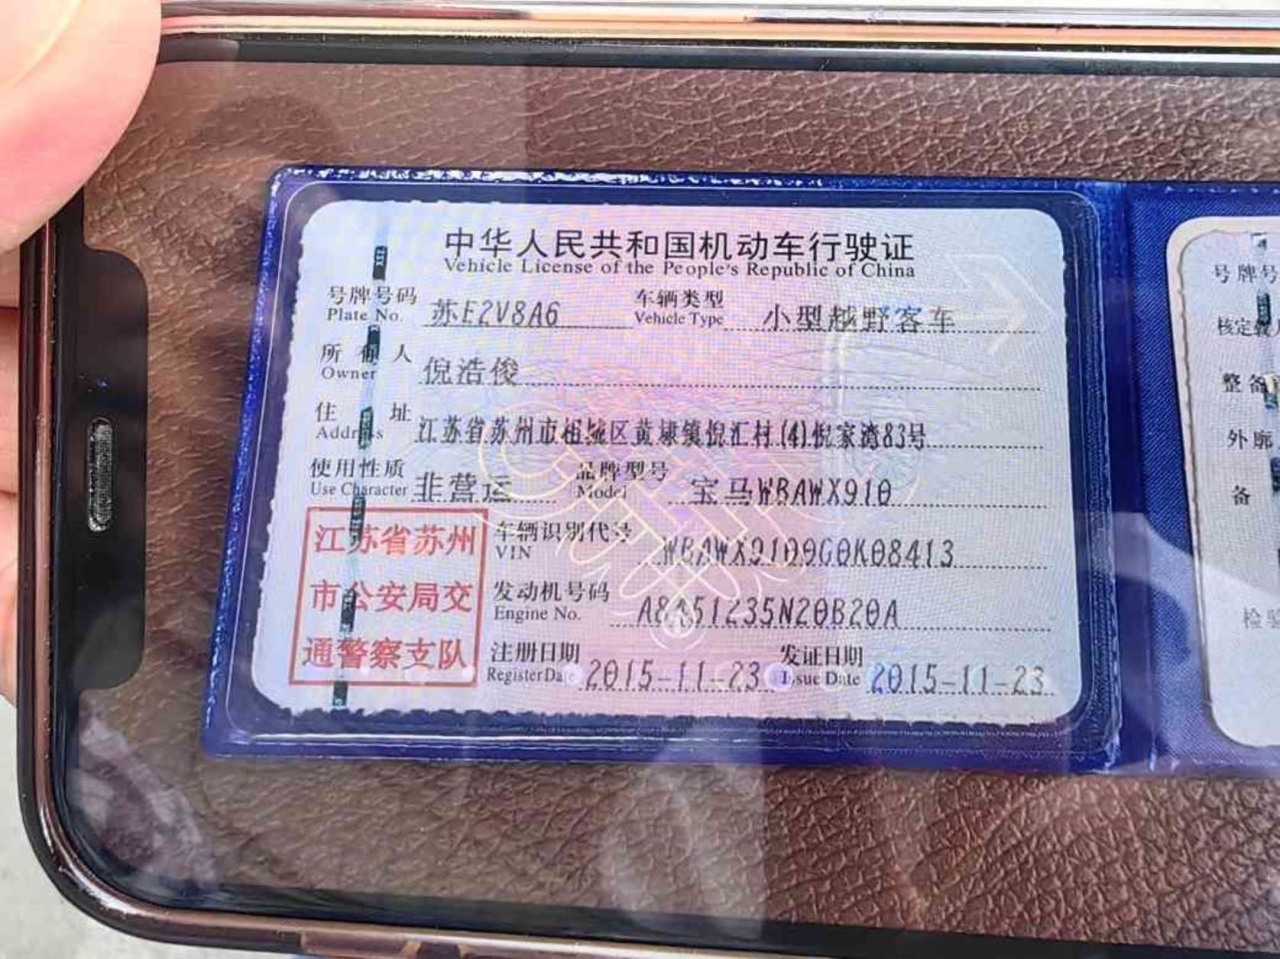 中华人民共和国机动车行驶证
Vehicle License of the People's Republic of China
号牌号码 苏E2V8A6 车辆类型 小型越野客车
Plate No. Vehicle Type
所有人 倪浩俊
Owner
住址 江苏省苏州市相城区黄埭镇倪汇村(4)倪家湾83号
Address
使用性质 非营运 品牌型号 宝马WBAWX910
Use Character Model
江苏省苏州
市公安局交
通警察支队
车辆识别代号 WBAWX9109G0K08413
VIN
发动机号码 A8A51235N20B20A
Engine No.
注册日期 2015-11-23 发证日期 2015-11-23
Register Date Issue Date
号牌号
核定载人
整备
外廓
备
检验